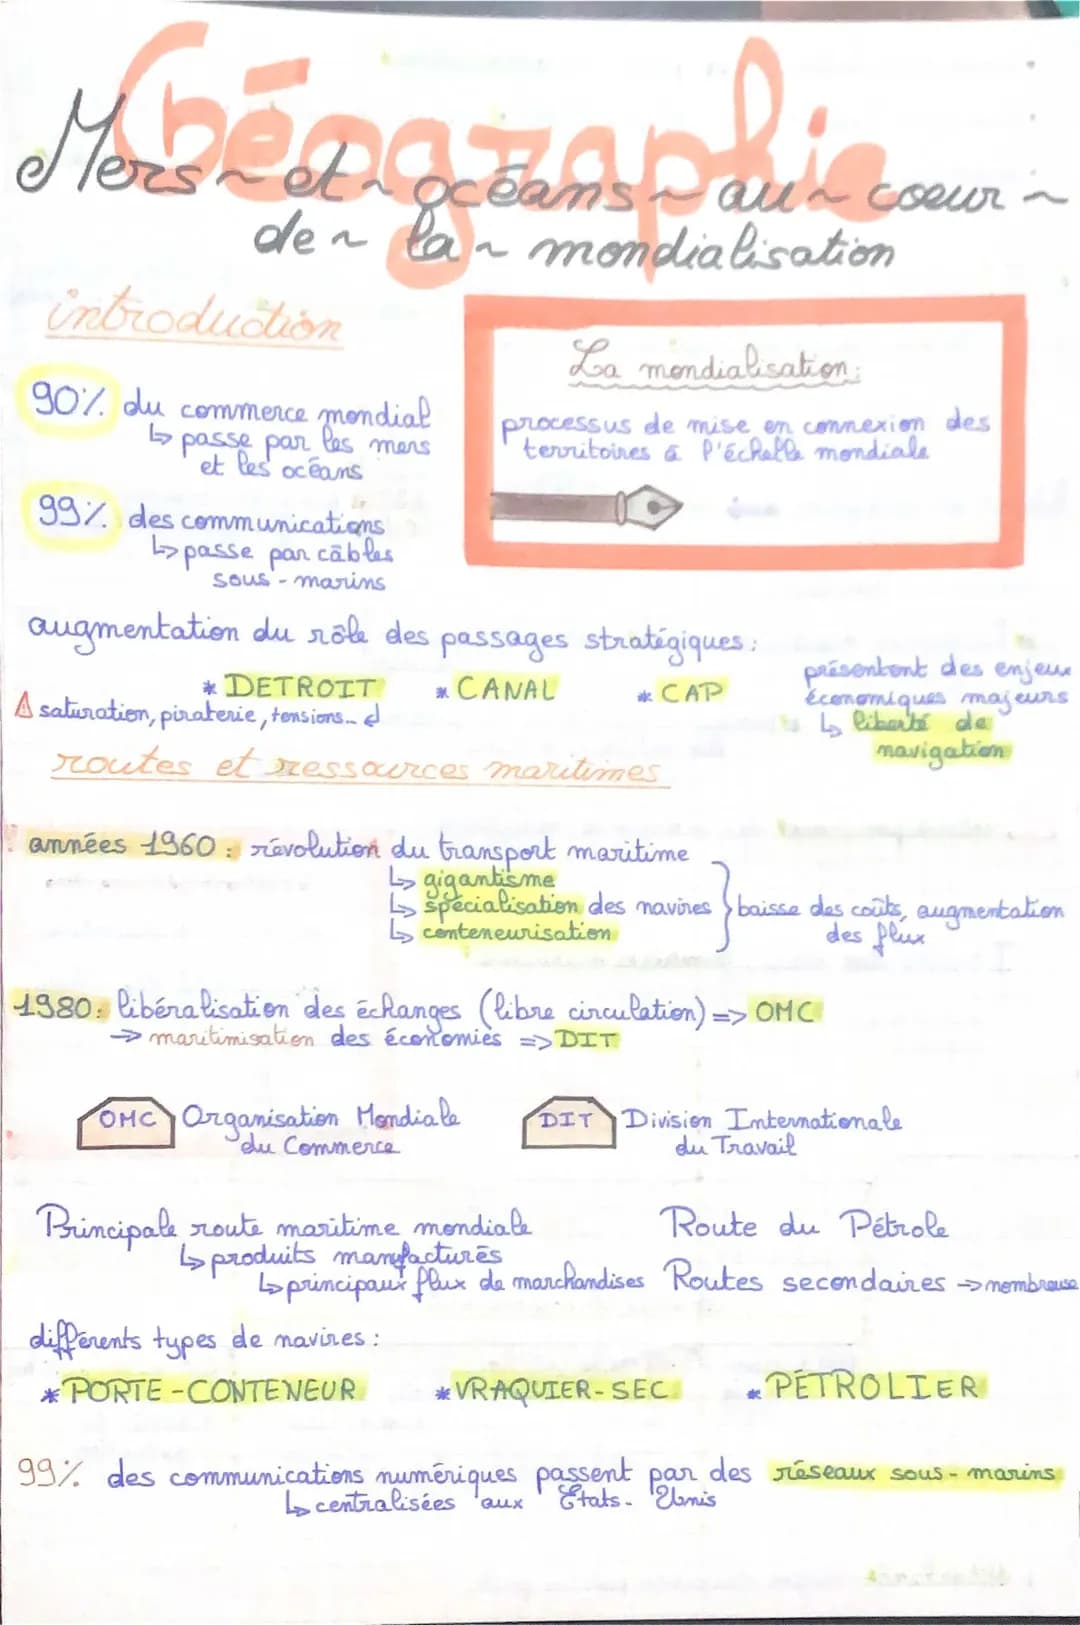 Géographie
Mers ~ et ~ océans ~ au ~ coeur ~
de ~ la ~ mondialisation
introduction
90% du commerce mondial
↳ passe par les mers
et les océans
99% des communications
↳ passe par câbles
sous-marins
La mondialisation:
processus de mise en connexion des
territoires à l'échelle mondiale
augmentation du rôle des passages stratégiques:
* DETROIT * CANAL * CAP
⚠ saturation, piraterie, tensions...
présentent des enjeux
économiques majeurs
↳ liberté de
navigation
routes et ressources maritimes
années 1960: révolution du transport maritime
↳ gigantisme
↳ spécialisation des navires
↳ conteneurisation
baisse des coûts, augmentation
des flux
1980: libéralisation des échanges (libre circulation) => OMC
→ maritimisation des économies => DIT
OMC Organisation Mondiale
du Commerce
DIT Division Internationale
du Travail
Principale route maritime mondiale
↳ produits manufacturés
↳ principaux flux de marchandises
Route du Pétrole
Routes secondaires → nombreuse
différents types de navires:
* PORTE-CONTENEUR * VRAQUIER-SEC * PÉTROLIER
99% des communications numériques passent par des réseaux sous-marins
↳ centralisées aux États-Unis